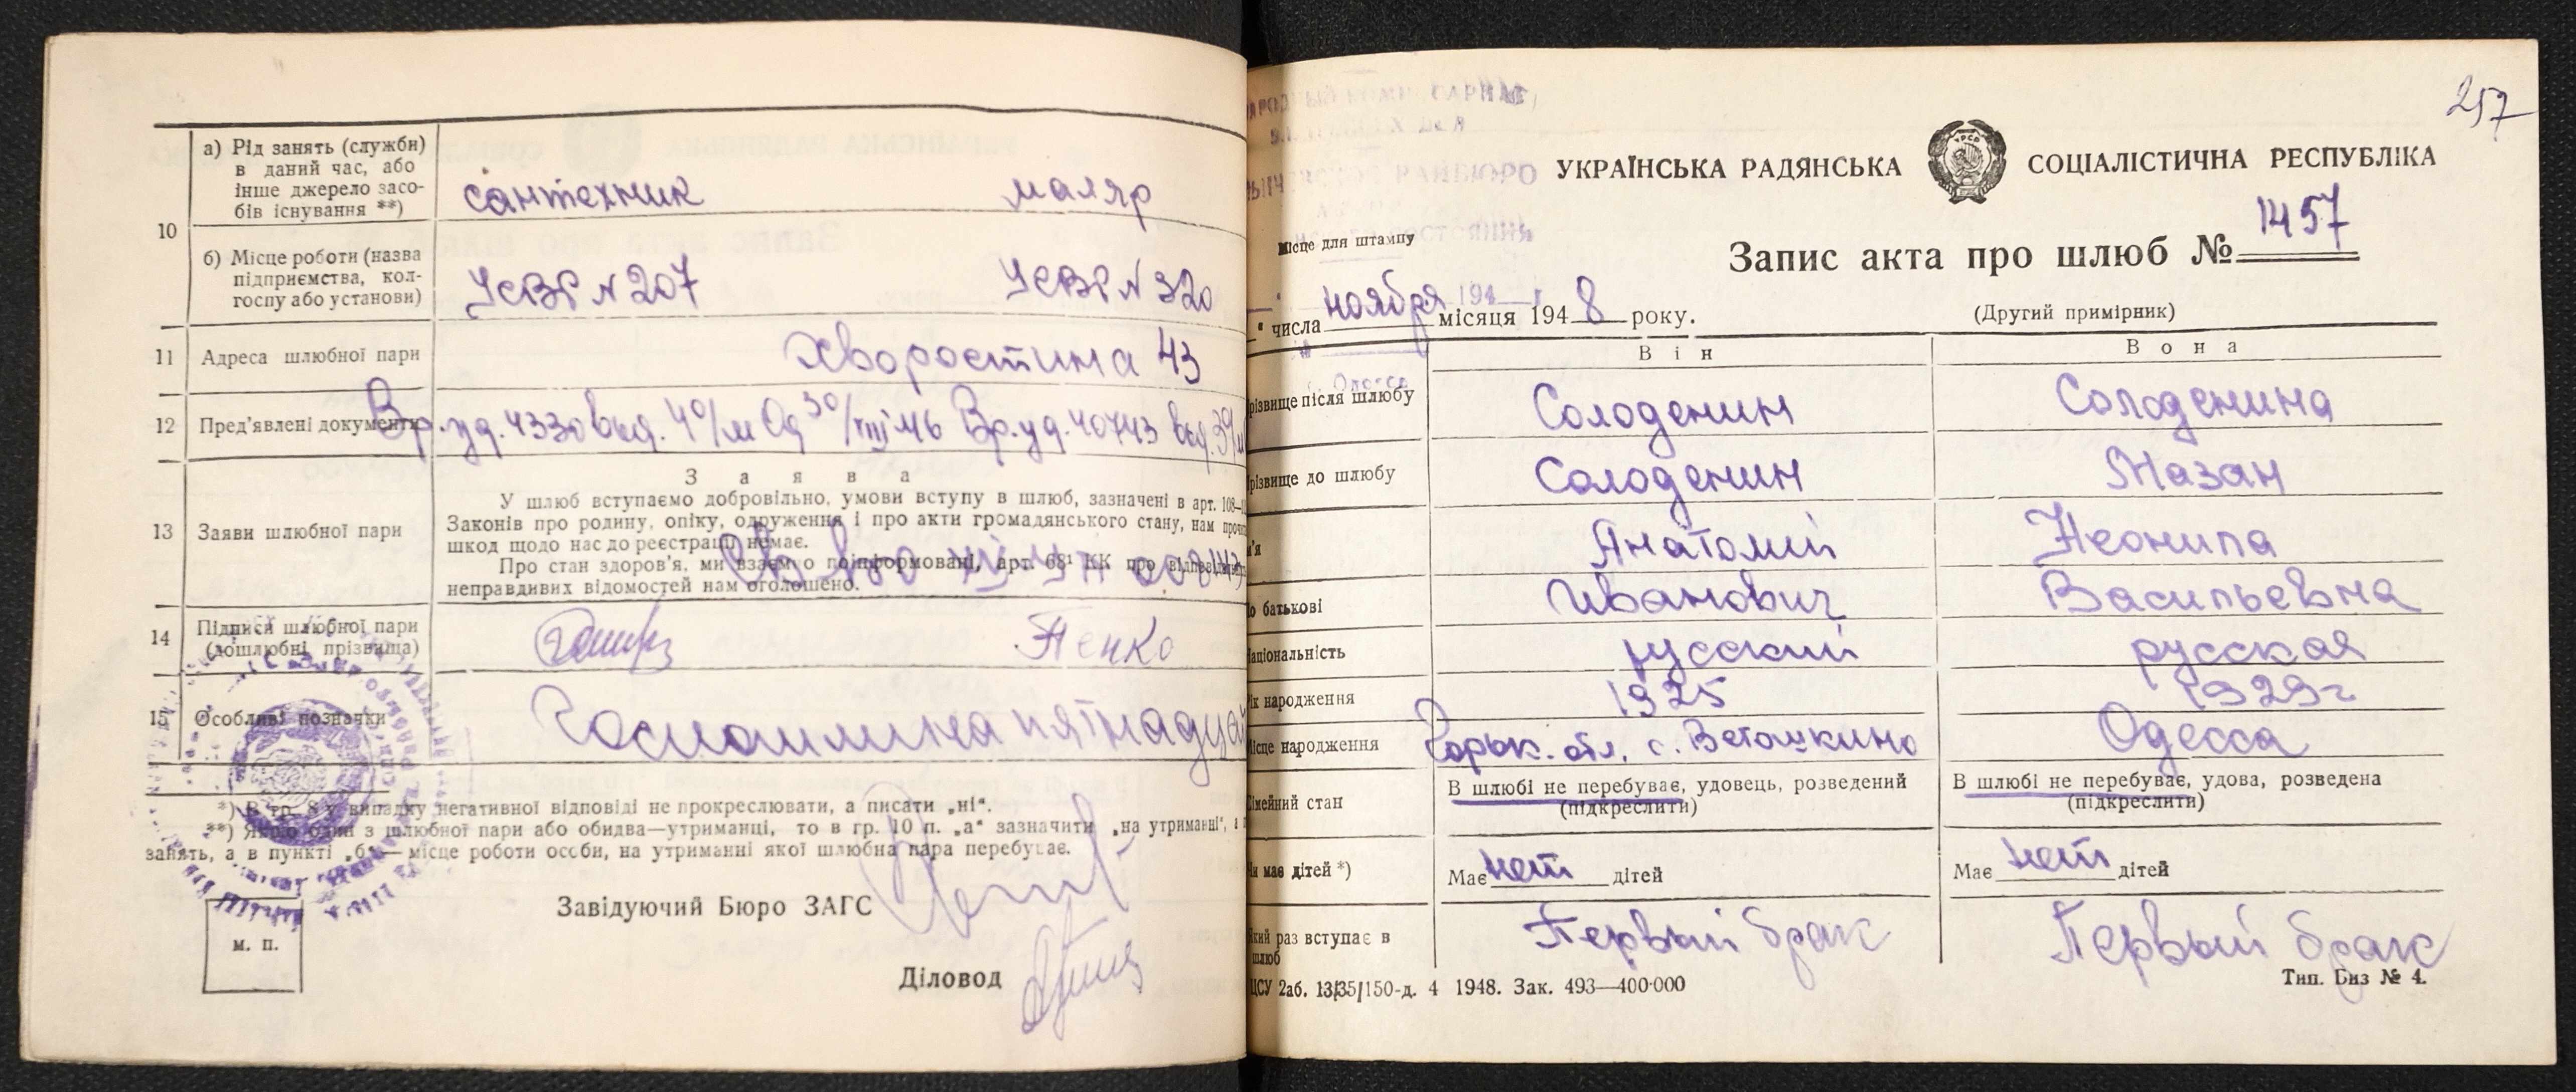 а) Рід занять (служби)
в даний час, або
інше джерело засо-
бів існування **)
сантехник маляр
10
б) Місце роботи (назва
підприємства, кол-
госпу або установи)
УСВР N 207 УСВР N 320
11 Адреса шлюбної пари
Хворостина 43
12 Пред'явлені документи
Вр. уд. 4330 выд. 4 о/м Од 30/VIII 46 Вр. уд. 40743 выд. 3 о/м
З а я в а
У шлюб вступаємо добровільно, умови вступу в шлюб, зазначені в арт. 108
Законів про родину, опіку, одруження і про акти громадянського стану, нам
13 Заяви шлюбної пари
шкод щодо нас до реєстрації немає.
Про стан здоров'я, ми взаємно поінформовані, арт. 68¹ КК про
неправдивих відомостей нам оголошено.
14 Підписи шлюбної пари
(дошлюбні прізвища)
15 Особливі позначки
Госпошлина
*) В гр. 8 у випадку негативної відповіді не прокреслювати, а писати „ні“.
**) Якщо один з шлюбної пари або обидва—утриманці, то в гр. 10 п. „а“ зазначити „на утриманні“, а
занять, а в пункті „б“— місце роботи особи, на утриманні якої шлюбна пара перебуває.
Завідуючий Бюро ЗАГС
м. п.
Діловод
257
УКРАЇНСЬКА РАДЯНСЬКА СОЦІАЛІСТИЧНА РЕСПУБЛІКА
Місце для штампу
Запис акта про шлюб № 1457
“ числа ноября місяця 1948 року.
(Другий примірник)
Він Вона
г. Одесса
різвище після шлюбу Солоденин Солоденина
різвище до шлюбу Солоденин Мазан
м'я Анатолий Неонила
о батькові Иванович Васильевна
аціональність русский русская
ік народження 1925 1929 г
ісце народження Горьк. обл. с. Ветошкино Одесса
імейний стан
В шлюбі не перебуває, удовець, розведений
(підкреслити)
В шлюбі не перебуває, удова, розведена
(підкреслити)
Чи має дітей *)
Має нет дітей Має нет дітей
Який раз вступає в
шлюб
Первый брак Первый брак
ЦСУ 2аб. 13/35/150-д. 4 1948. Зак. 493—400·000
Тип. Биз № 4.